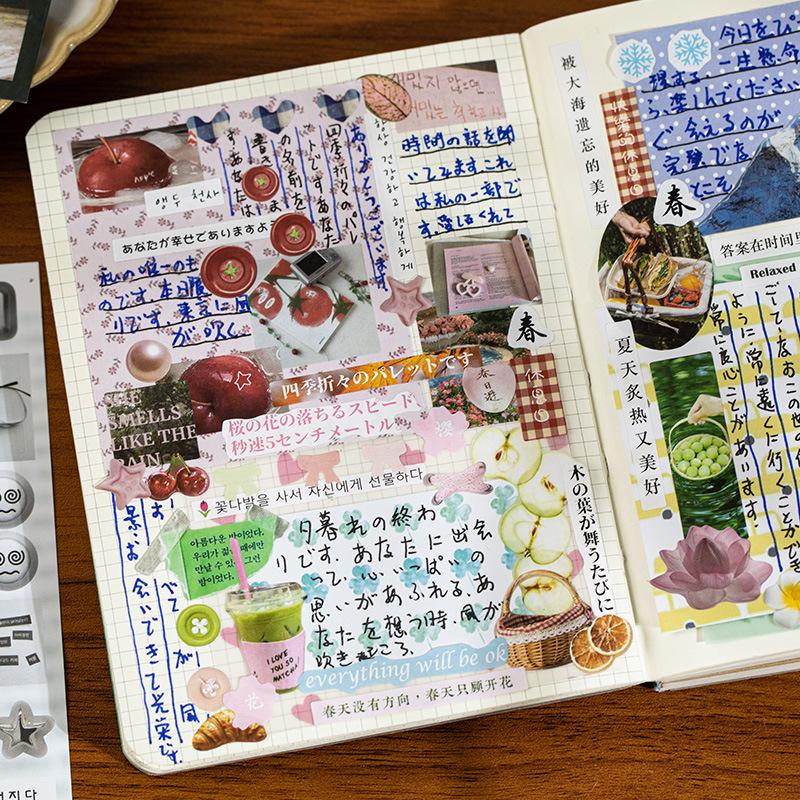 hope
앵두 천사
あなたが幸せでありますよ
ありがとうございます。
四季折々のパレ
トです。あなた
の名前を
書きま
すあなたは
私の唯一のも
のです。本日限
りです。東京に風
が吹く
재밌지 않으면
항상 건강하고 행복하게
時間の話を聞
いてみますこれ
は私の一部で
す。愛しくれて
春
四季折々のパレットです
春日遊
休日
THE
SMELLS
LIKE THE
RAIN
桜の花の落ちるスピード
秒速5センチメートル
櫻
꽃나발을 사서 자신에게 선물하다
아름다운 밤이었다.
우리가 젊
만날 수 있
밤이었다.
夕暮れの終わ
りです。あなたに出会
って、心いっぱいの
思いがあふれる、あ
なたを想う時、風が
吹き起こる。
I LOVE
YOU SO
MATCHA!
everything will be ok
春天没有方向，春天只顾开花
花
お会いできて光栄です。
木の葉が舞うたびに
被大海遗忘的美好
快樂的休日
今日をぴ
一生懸命
ら、楽しんでください
ぐ会えるのが
完璧でな
とそ
春
答案在时间里
Relaxed
夏天炙热又美好
ように、常に遠くに行く
常に良心ことがあります。